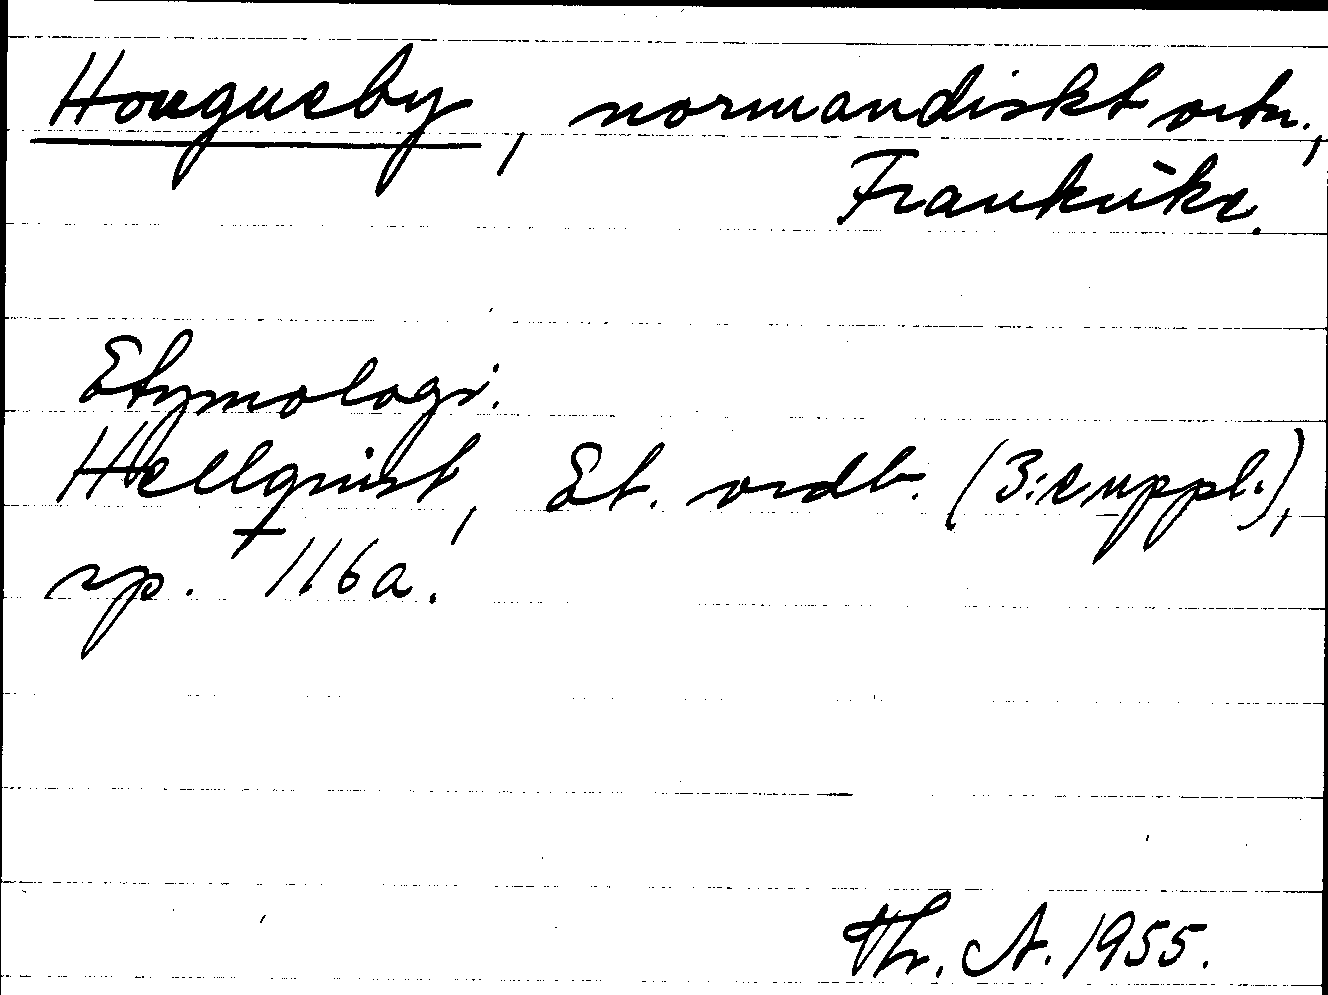 Hougueby, normandiskt ortn.,
Frankrike.
Etymologi.
Hellquist, Et. ordb. (3:e uppl.),
sp. 116a.
Th. A. 1955.